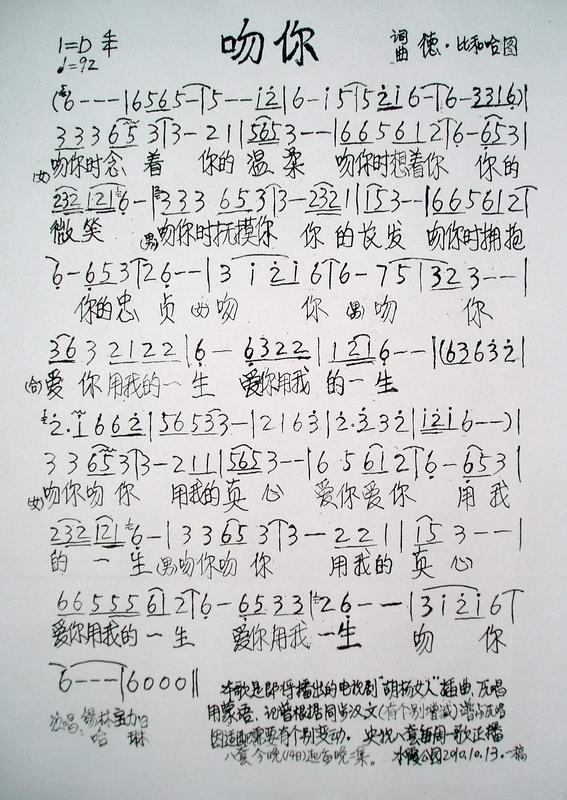 吻你
1=D 4/4
♩=92
词曲 德·比和哈图
(6---|6565-|5---i2|6-i5|52i6-|6-3316)|
333653|3-21|5653--|66561 2|6-653|
(女)吻你时念着 你的温柔 吻你时想着你 你的
232 121 6-|333 653|3-2321|153--|665612|
微笑 (男)吻你时抚摸你 你的长发 吻你时拥抱
6-653|26--|3 i 2i6|6-75|323--|
你的忠贞 (女)吻你 (男)吻你
363 2122|6-6322|1216--|(63632|
(合)爱你用我的一生 爱你用我的一生
2·i662|565533-|2163|2·332|i2i6--)|
33653|3-211|5653--|65612|6-653|
(女)吻你吻你 用我的真心 爱你爱你 用我
232 121 6-|33653|3-221|153--|
的一生 (男)吻你吻你 用我的真心
66555612|6-6533|26---|3i2i6|
爱你用我的一生 爱你用我一生 吻你
6---|6000||
本歌是即将播出的电视剧"胡杨女人"插曲,原唱
用蒙语,记谱根据同步汉文(有个别增减)谱与原唱
因适配需要有个别变动。央视八套每周一歌正播
八套今晚(14日)起每晚二集。 水霞公园2010.10.13.一稿
演唱:锡林宝力日
哈琳